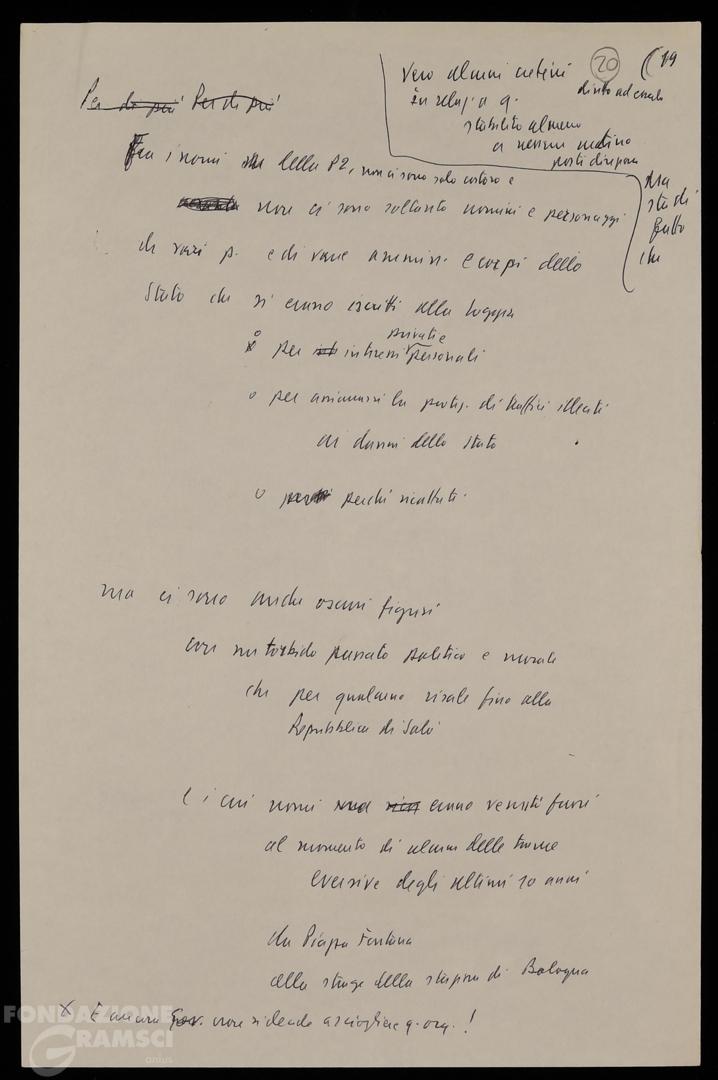 20 (19
Vero alcuni criteri
in relaz. a q. diritto ad essere
stabilito almeno
a nessun
posti di
Ma
sta di
fatto
che
Per di più Per di più
Fra i nomi della P2, non ci sono solo costoro e
non ci sono soltanto uomini e personaggi
di vari p. e di varie amminis. e corpi dello
Stato che si erano iscritti alla Loggia
private e
o per interessi personali
o per assicurarsi la protez. di traffici illeciti
ai danni dello Stato
o perché ricattati.
ma ci sono anche oscuri figuri
con un torbido passato politico e morale
che per qualcuno risale fino alla
Repubblica di Salò
e i cui nomi erano venuti fuori
al momento di alcune delle trame
eversive degli ultimi 10 anni
da Piazza Fontana
alla strage della stazione di Bologna
X È ancora Gov. non si decide a sciogliere q. org. !
FONDAZIONE
GRAMSCI
onlus